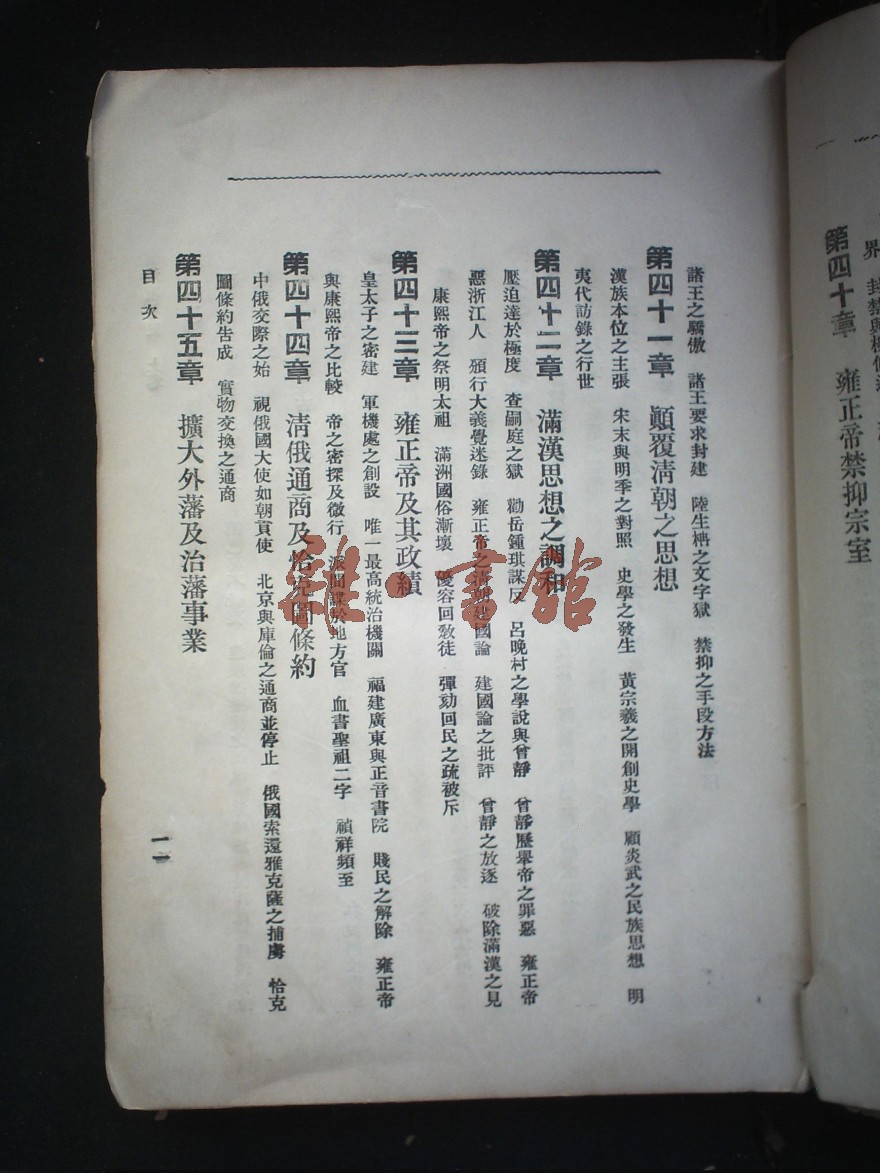 第四十章　雍正帝禁抑宗室
諸王之驕傲　諸王要求封建　陸生柟之文字獄　禁抑之手段方法
第四十一章　顚覆淸朝之思想
漢族本位之主張　宋末與明季之對照　史學之發生　黃宗羲之開創史學　顧炎武之民族思想　明
夷代訪錄之行世
第四十二章　滿漢思想之調和
壓迫達於極度　查嗣庭之獄　勸岳鍾琪謀反　呂晚村之學說與曾靜　曾靜歷舉帝之罪惡　雍正帝
惡浙江人　頒行大義覺迷錄　雍正帝之淸朝建國論　建國論之批評　曾靜之放逐　破除滿漢之見
康熙帝之祭明太祖　滿洲國俗漸壞　優容回敎徒　彈劾回民之疏被斥
第四十三章　雍正帝及其政績
皇太子之密建　軍機處之創設　唯一最高統治機關　福建廣東與正音書院　賤民之解除　雍正帝
與康熙帝之比較　帝之密探及微行　派間諜於地方官　血書聖祖二字　禎祥頻至
第四十四章　淸俄通商及恰克圖條約
中俄交際之始　視俄國大使如朝貢使　北京與庫倫之通商並停止　俄國索還雅克薩之捕虜　恰克
圖條約告成　實物交換之通商
第四十五章　擴大外藩及治藩事業
目次
一一
雜·書館